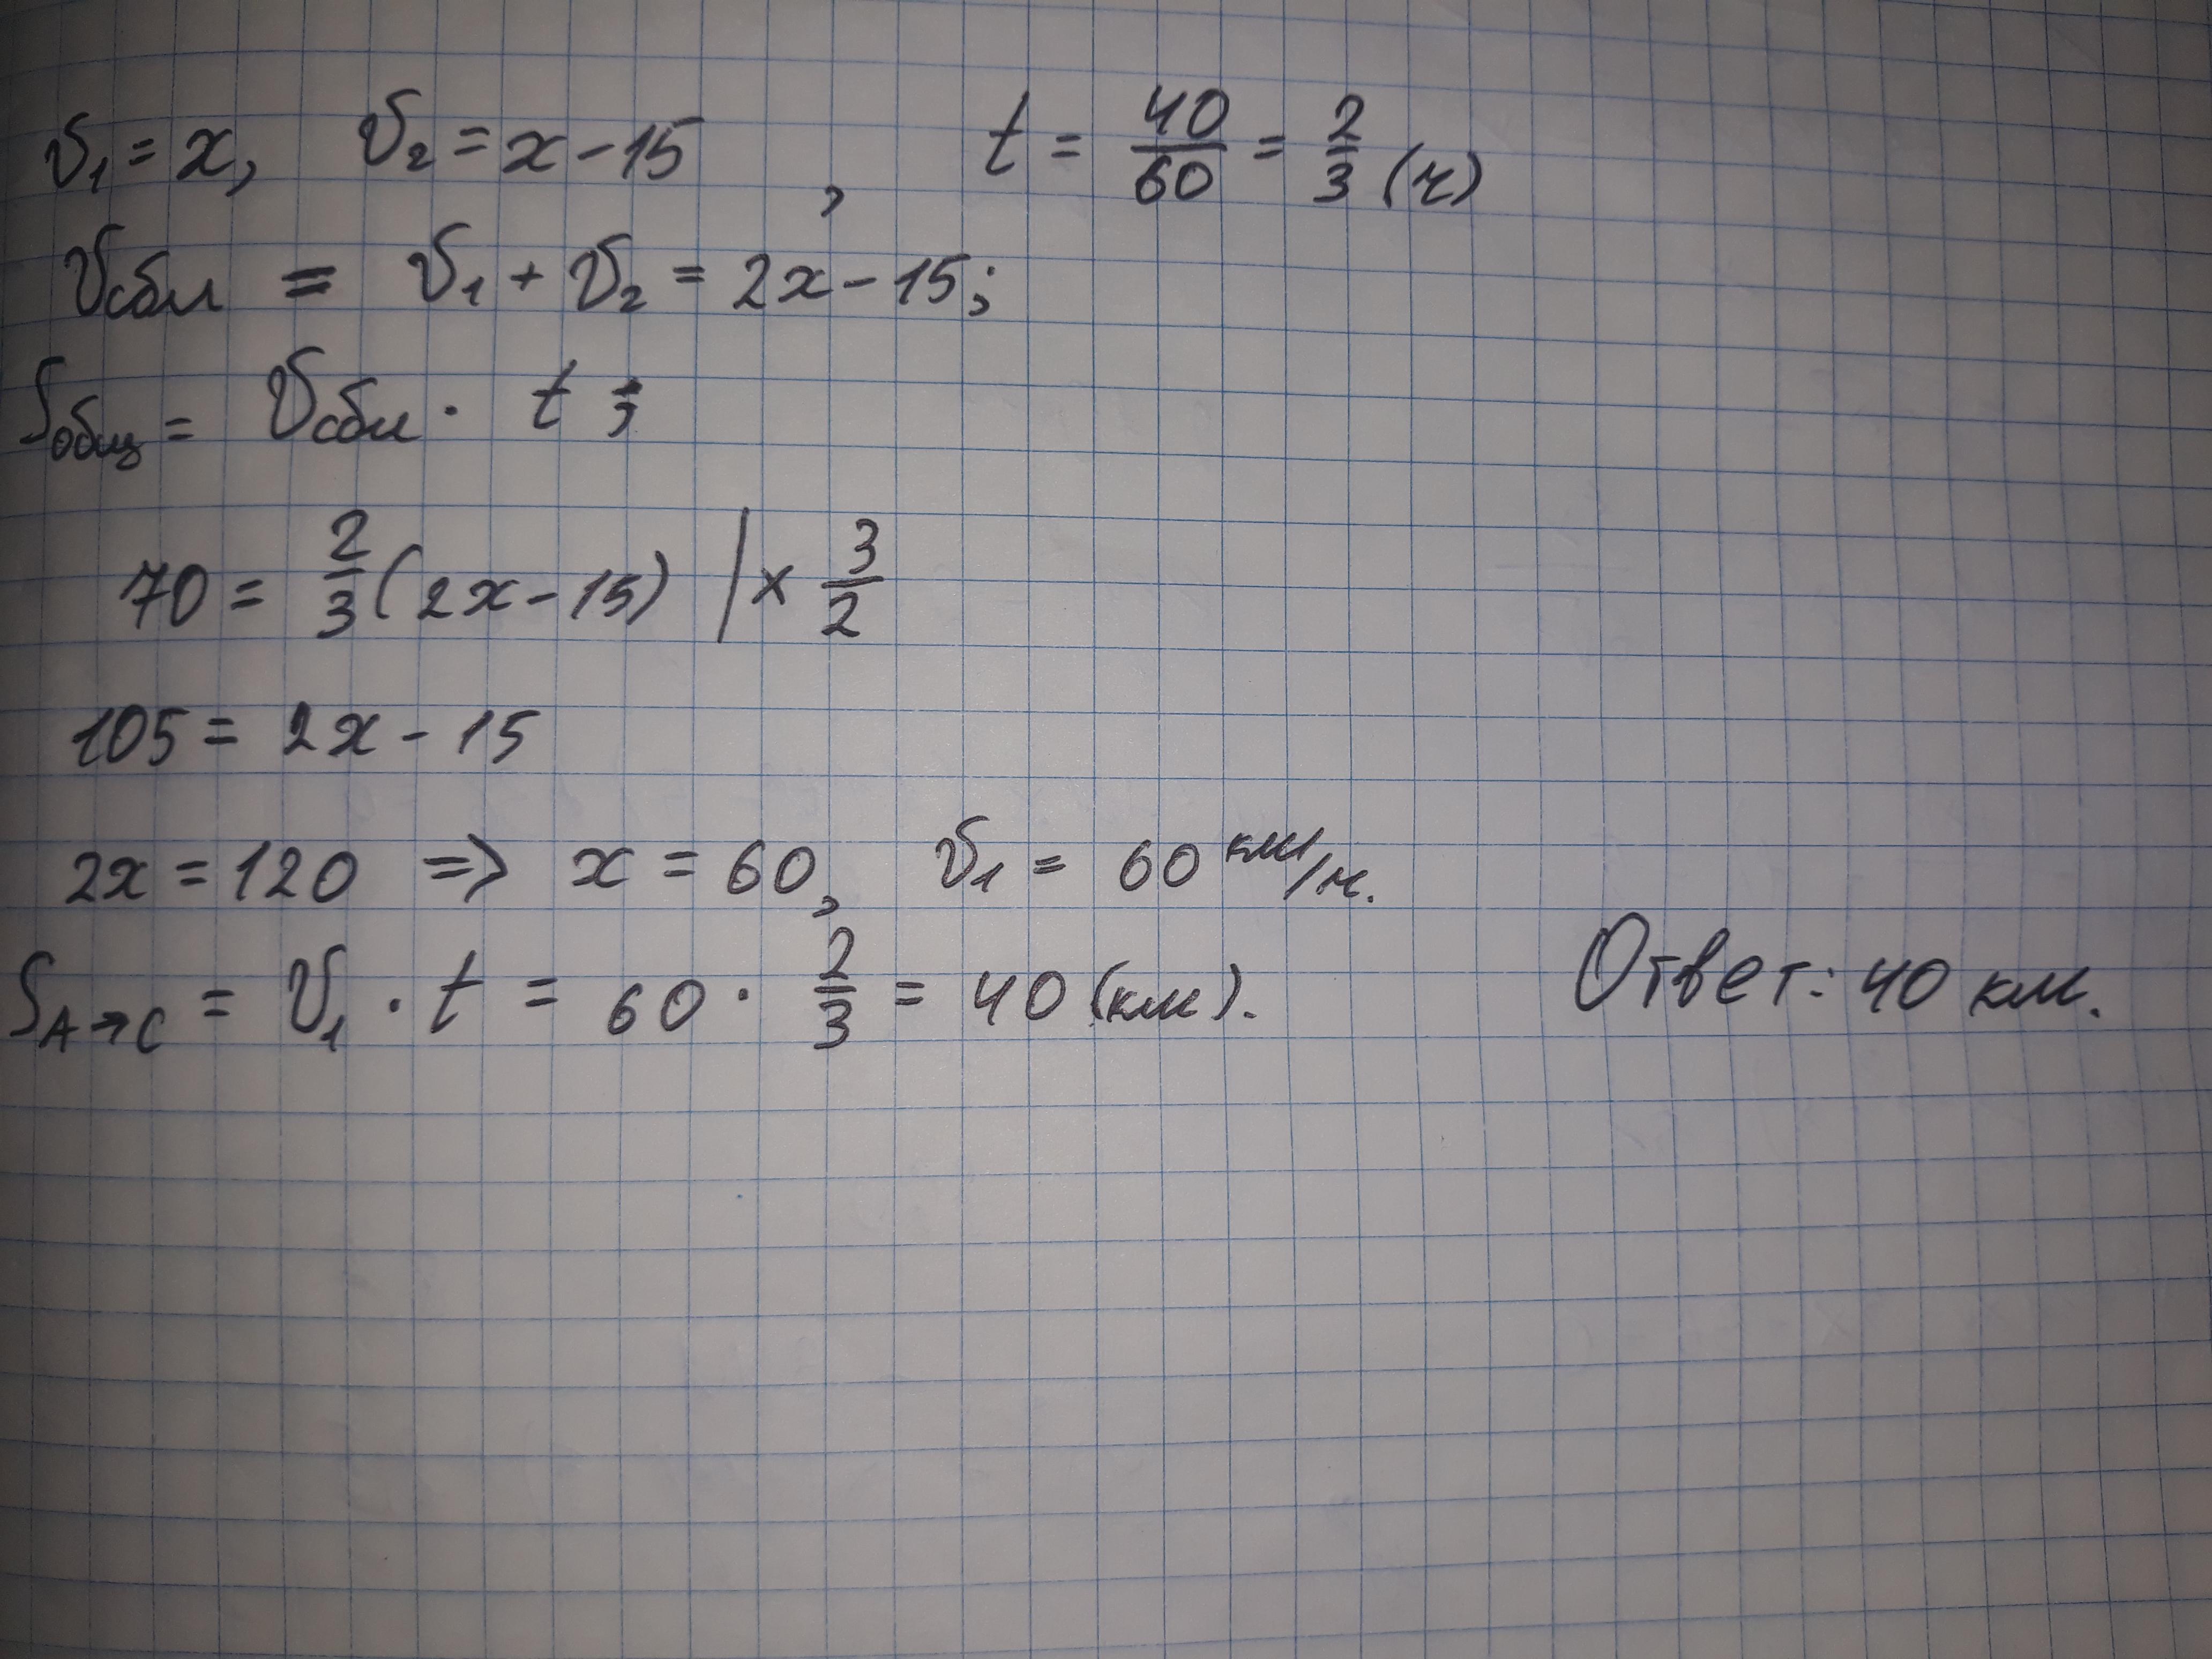 v₁ = x, v₂ = x - 15 , t = 40/60 = 2/3 (ч)
vсбл = v₁ + v₂ = 2x - 15;
Sобщ = vсбл · t ;
70 = 2/3 (2x - 15) | × 3/2
105 = 2x - 15
2x = 120 => x = 60, v₁ = 60 км/ч.
S A→C = v₁ · t = 60 · 2/3 = 40 (км). Ответ: 40 км.